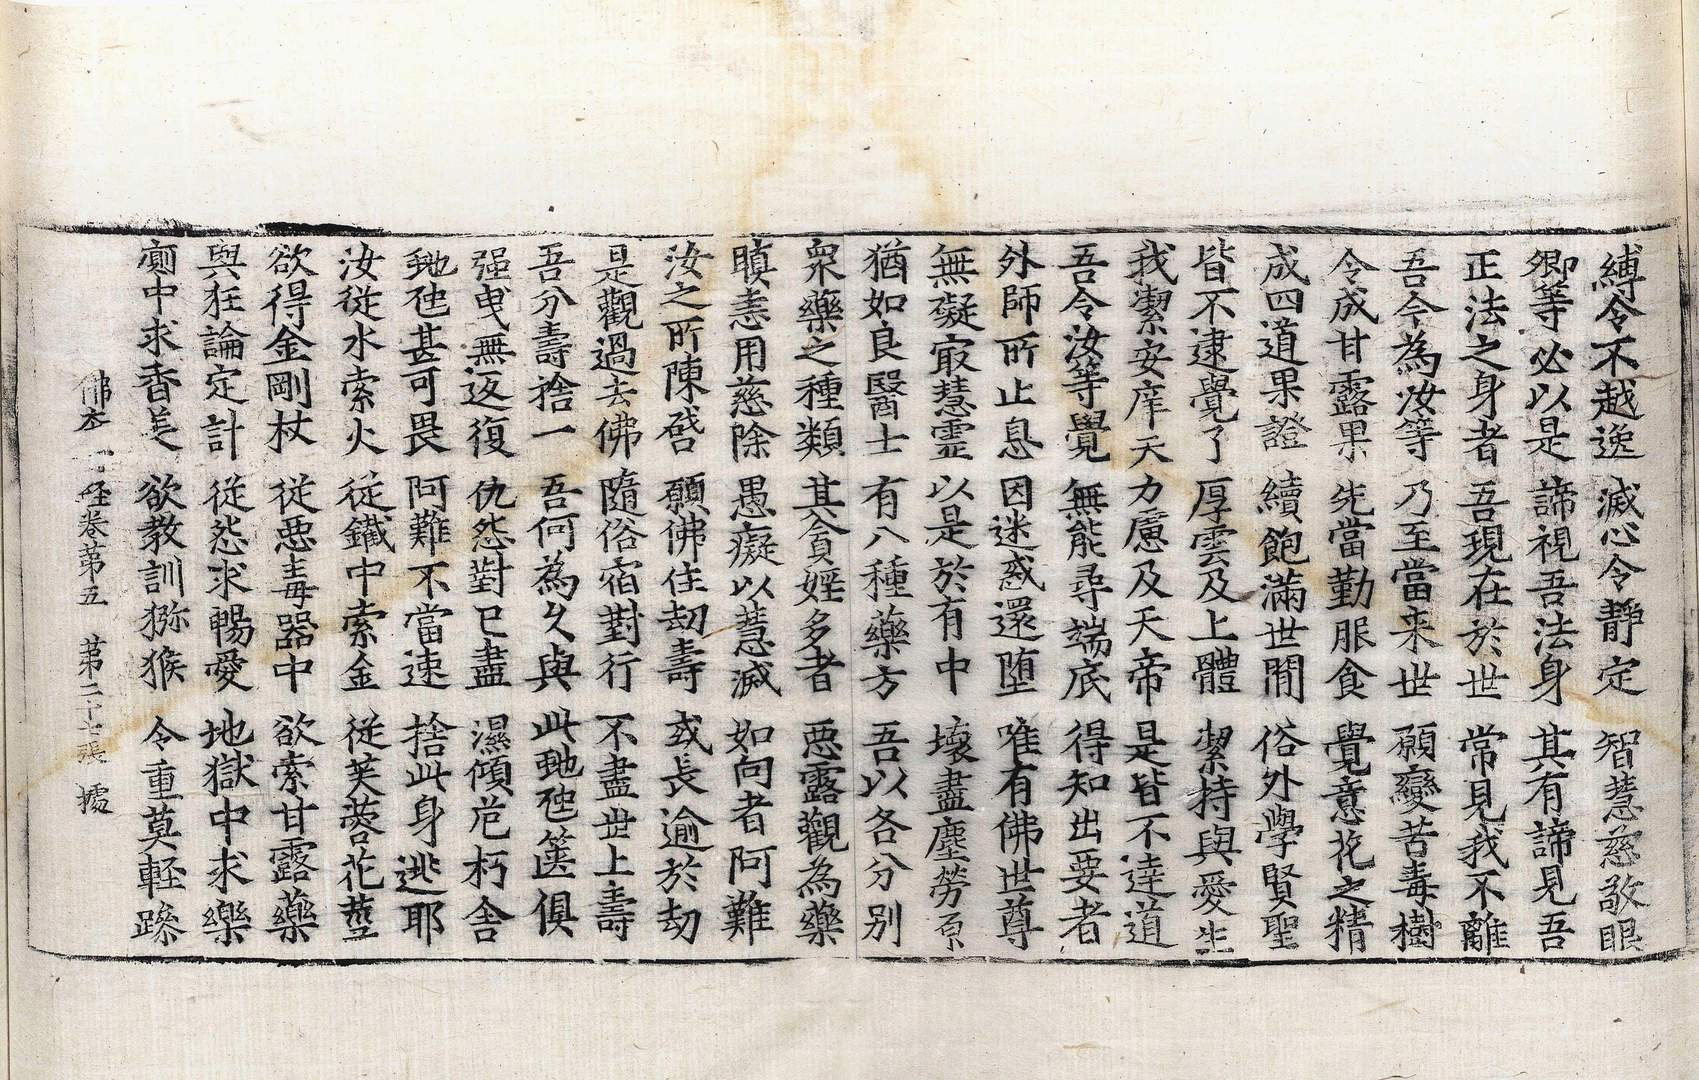 縛令不越逸 滅心令靜定 智慧慈敬眼
卿等必以是 諦視吾法身 其有諦見吾
正法之身者 吾現在於世 常見我不離
吾今為汝等 乃至當来世 願變苦毒樹
令成甘露果 先當勤服食 覺意花之精
成四道果證 續飽滿世間 俗外學賢聖
皆不逮覺了 厚雲及上體 絜持與愛生
我潔安庠天 力慮及天帝 是皆不達道
吾令汝等覺 無能尋端底 得知出要者
外師所止息 因迷惑還墮 唯有佛世尊
無礙㝡慧靈 以是於有中 壞盡塵勞原
猶如良醫士 有八種藥方 吾以各分别
衆藥之種類 其貪婬多者 惡露觀為藥
瞋恚用慈除 愚癡以慧滅 如向者阿難
汝之所陳啓 願佛住劫壽 或長逾於劫
是觀過去佛 隨俗宿對行 不盡世上壽
吾分壽捨一 吾何為久與 此虵虺篋俱
强曳無返復 仇怨對已盡 濕傾危朽舍
虵虺甚可畏 阿難不當速 捨此身逃耶
汝從水索火 從鐵中索金 從芙蓉花莖
欲得金剛杖 從惡毒器中 欲索甘露藥
與狂論定計 從怨求暢愛 地獄中求樂
廁中求香美 欲教訓猕猴 令重莫輕躁
佛本行經卷第五 第二十七張 據